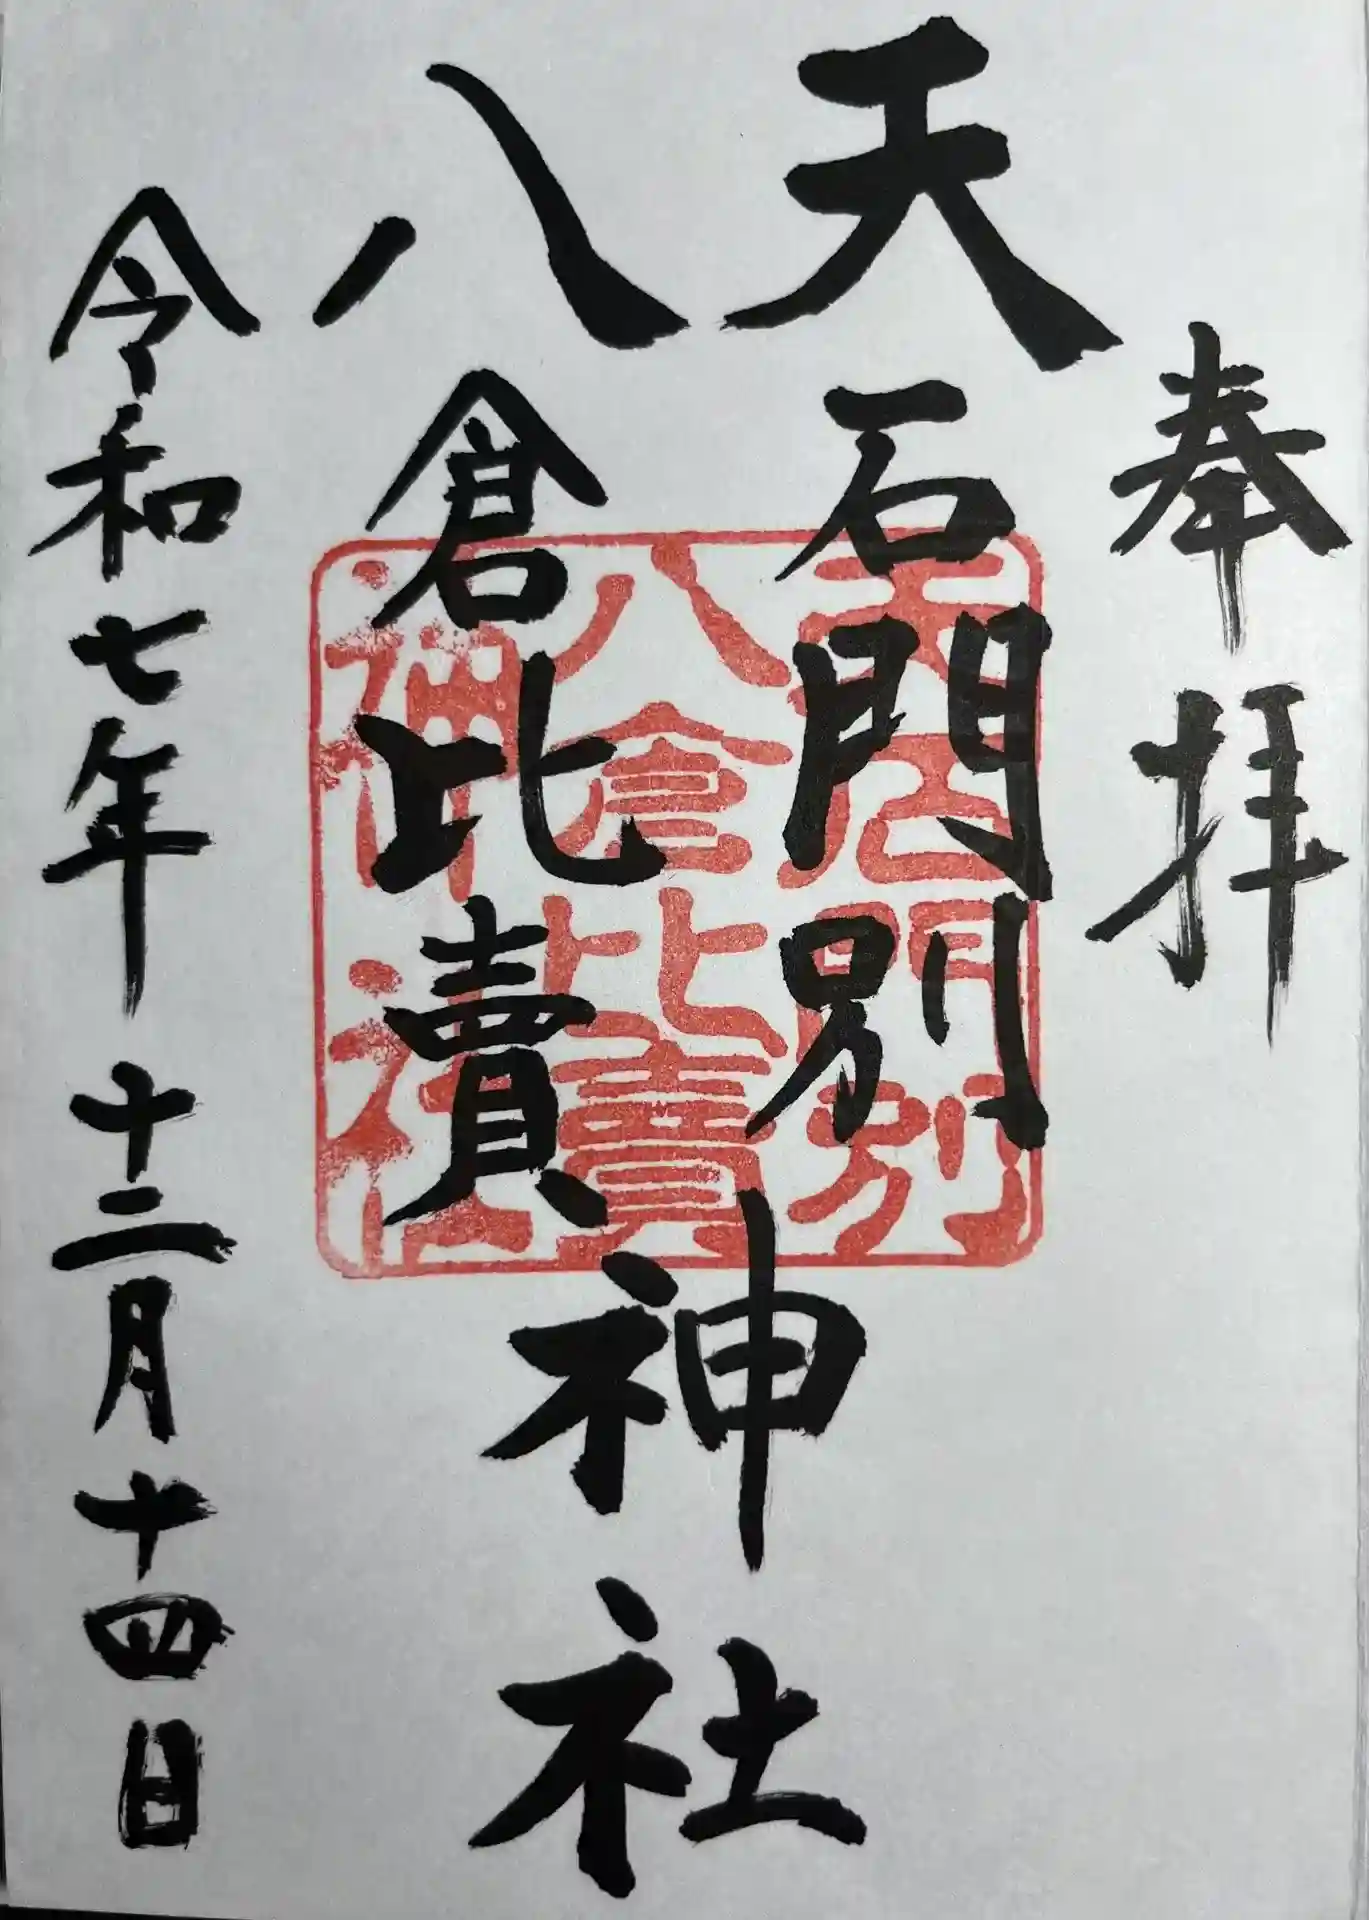 奉拝
天石門別
八倉比賣
神社
令和七年 十二月十四日
天石門別
八倉比賣
神社